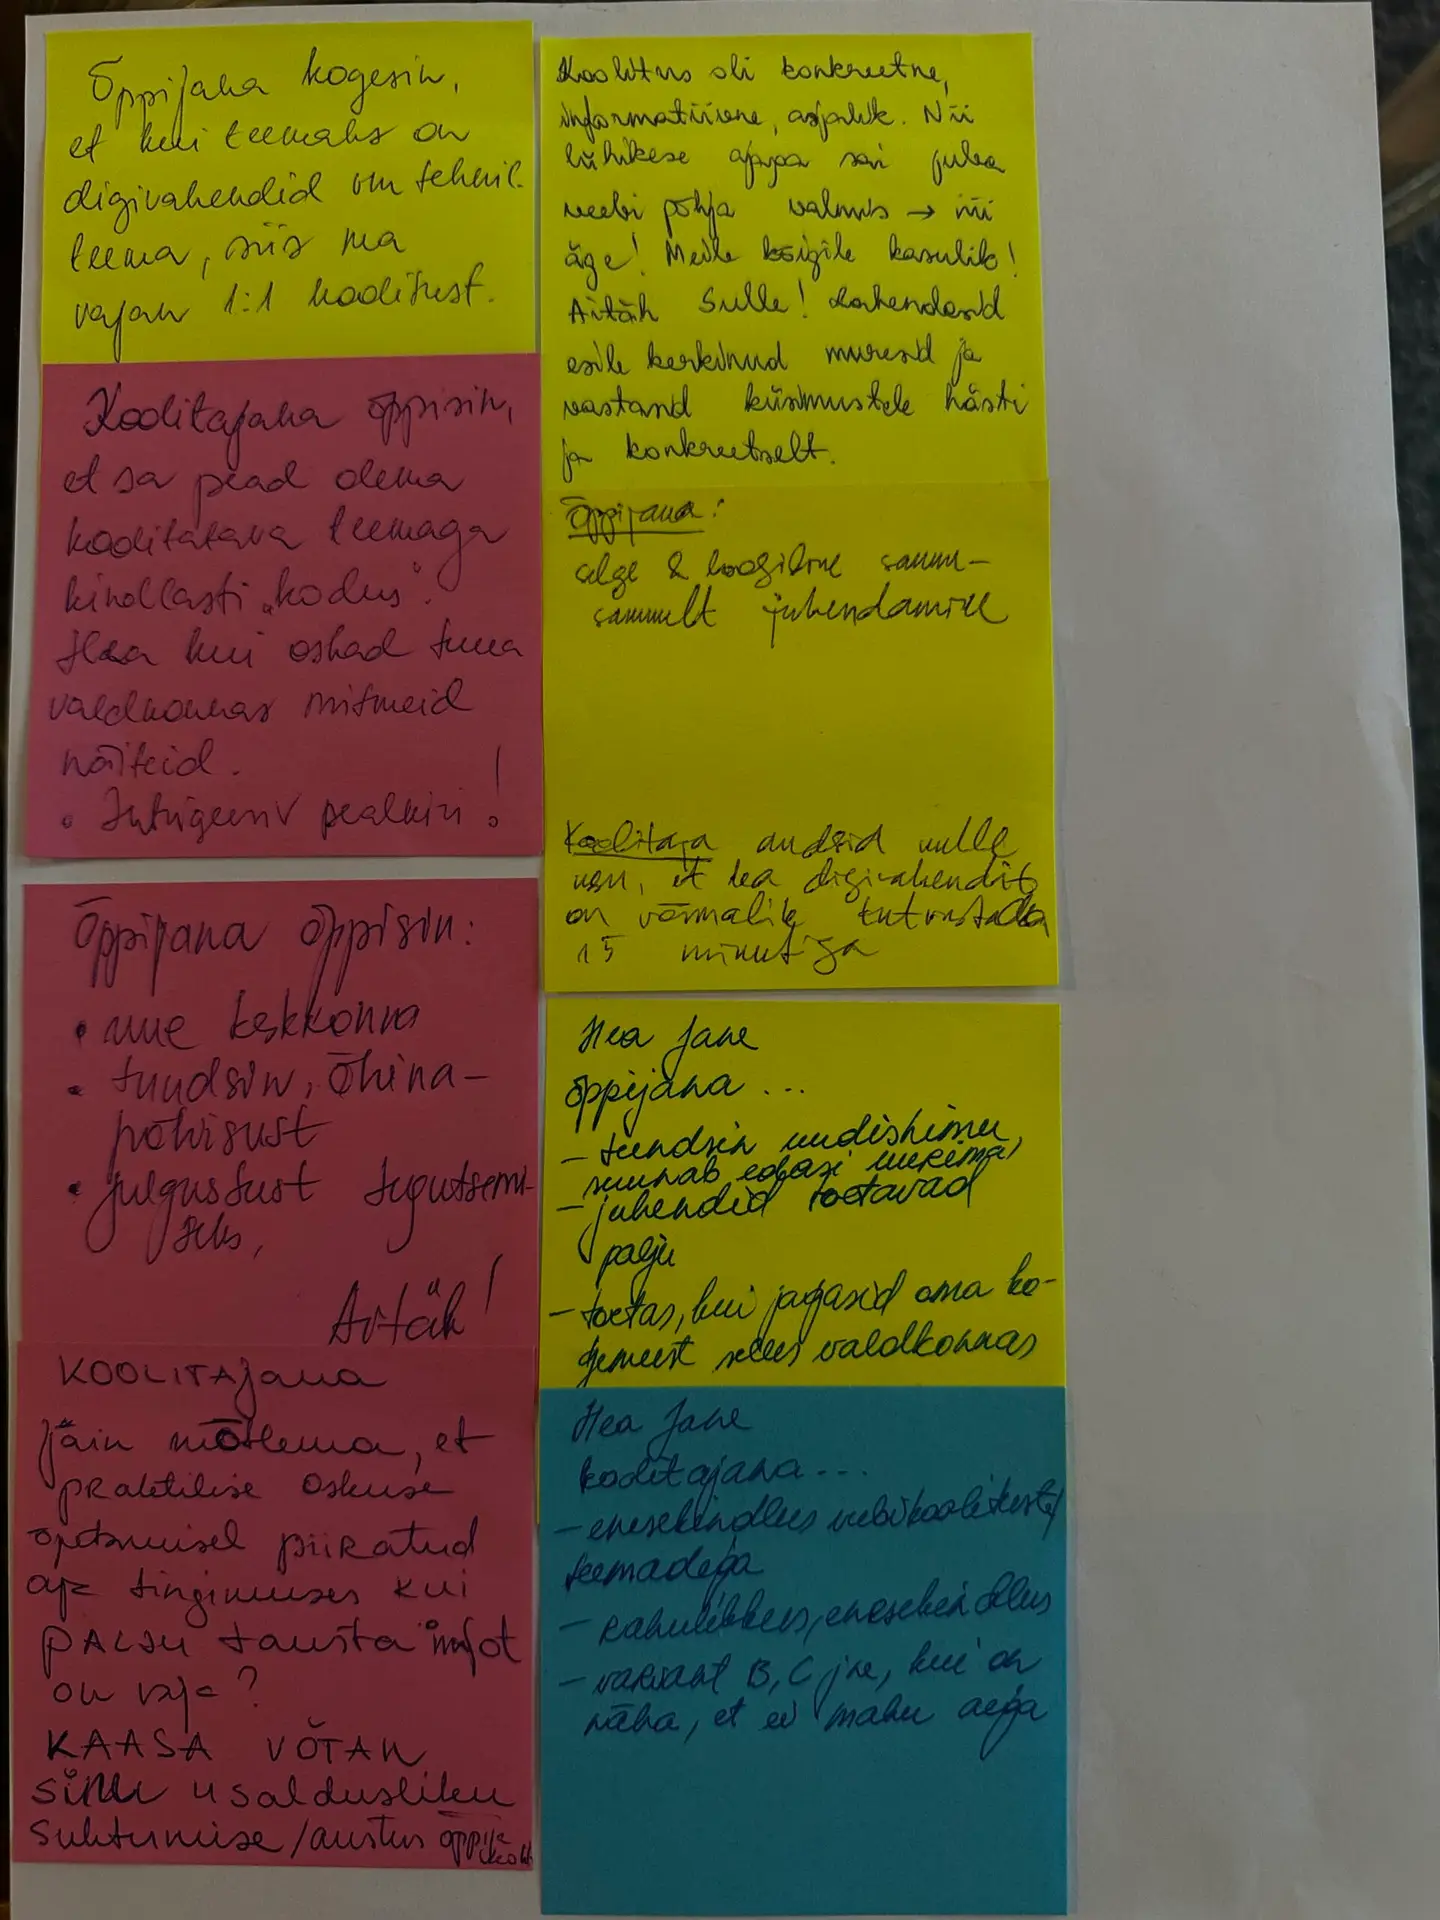 Õppijana kogesin,
et kui teemaks on
digivahendid või tehnil.
teema, siis ma
vajan 1:1 koolitust.
Koolitajana õppisin,
et sa pead olema
koolitatava teemaga
kindlasti „kodus".
Hea kui oskad tuua
valdkonnas mitmeid
näiteid.
• Intrigeeriv pealkiri!
Õppijana õppisin:
• uue keskkonna
• tundsin, õhina-
põhisust
• julgustust tegutsemi-
seks,
Aitäh!
KOOLITAjana
jäin mõtlema, et
praktilise oskuse
õpetamisel piiratud
aja tingimuses kui
PALJU tausta infot
on vaja?
KAASA VÕTAN
sinu usaldusliku
suhtumise/austus õppija
Koolitus oli konkreetne,
informatiivne, asjalik. Nii
lühikese ajaga sai juba
veebi põhja valmis → nii
äge! Meile kõigile kasulik!
Aitäh Sulle! Lahendasid
esile kerkinud muresid ja
vastasid küsimustele hästi
ja konkreetselt.
Õppijana:
selge & loogiline samm-
sammult juhendamine
Koolitaja andsid mulle
usu, et ka digivahendit
on võimalik tutvustada
15 minutiga
Hea Jane
õppijana...
– tundsin uudishimu,
suunab edasi uurima,
– juhendid toetavad
palju
– toetas, kui jagasid oma ko-
gemust selles valdkonnas
Hea Jane
koolitajana...
– enesekindlus veebikoolitustel/
teemadega
– rahulikkus, enesekindlus
– variant B, C jne, kui on
näha, et ei mahu aega